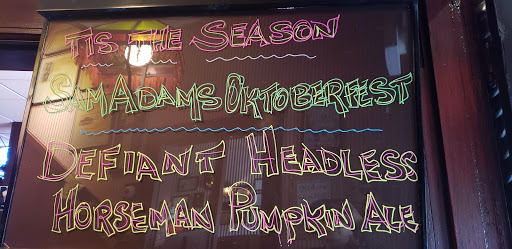 TIS THE SEASON
SAM ADAMS OKTOBERFEST
DEFIANT HEADLESS
HORSEMAN PUMPKIN ALE